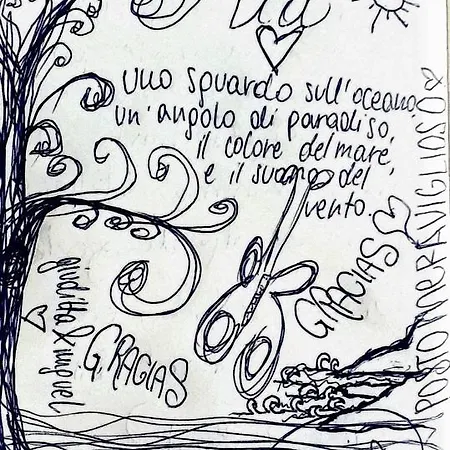 uno sguardo sull'oceano,
un'angolo di paradiso,
il colore del mare,
e il suono del
vento.
GRACIAS
GRACIAS
giuditta & miguel
POSTO MERAVIGLIOSO